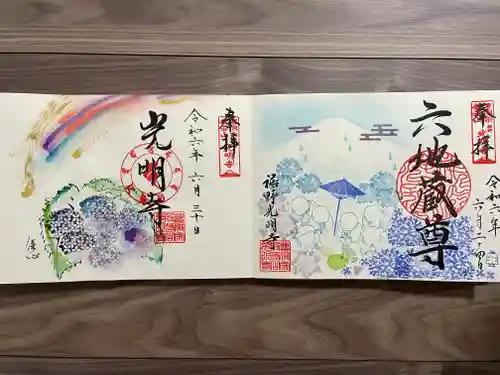 奉拝
六地蔵尊
令和六年
六月二十四日
裾野光明寺
奉拝
令和六年 六月三十日
光明寺